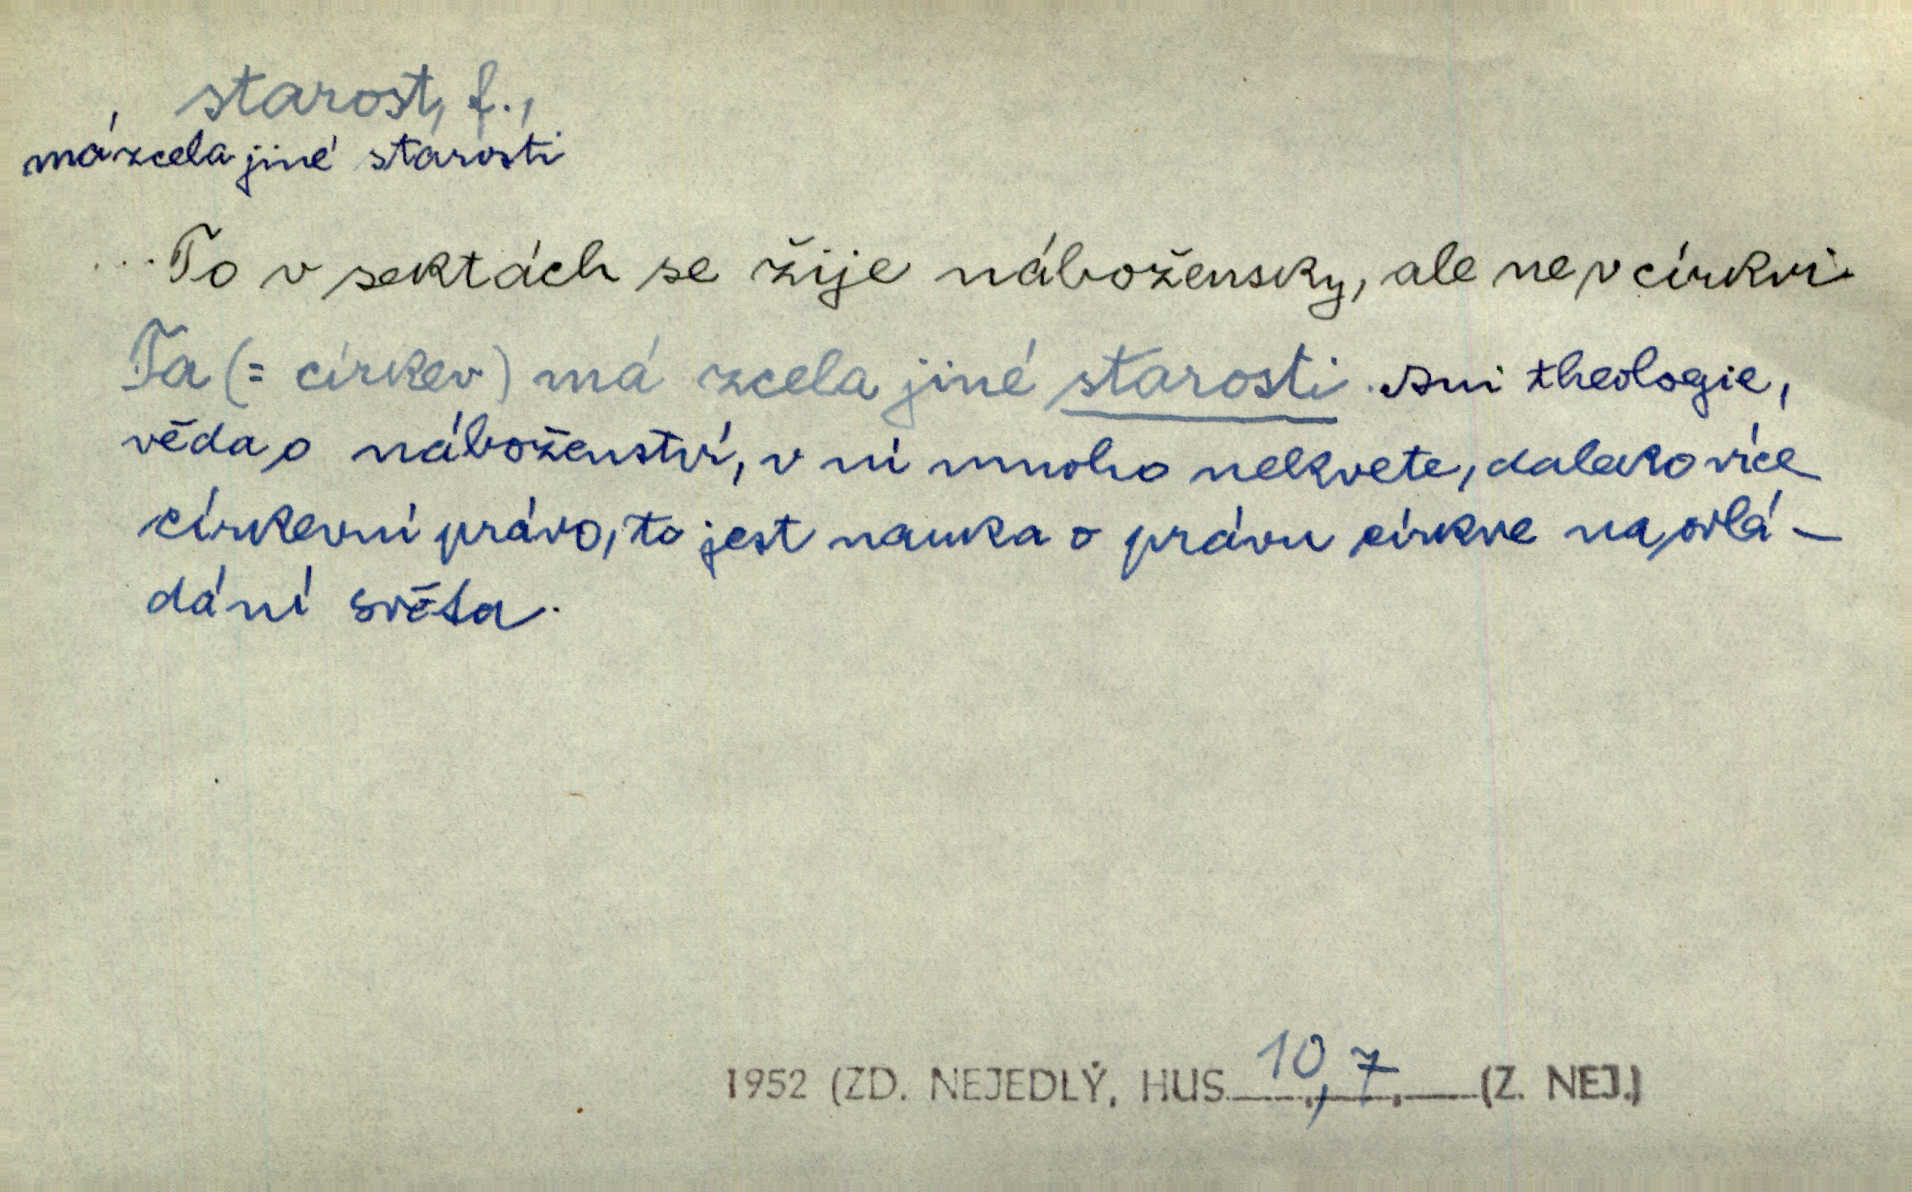 starost, f.,
má zcela jiné starosti
...To v sektách se žije nábožensky, ale ne v církvi.
Ta (= církev) má zcela jiné starosti. Ani theologie,
věda o náboženství, v ní mnoho nekvete, daleko více
církevní právo, to jest nauka o právu církve na ovlá-
dání světa.
1952 (ZD. NEJEDLÝ, HUS 10,7 (Z. NEJ.)